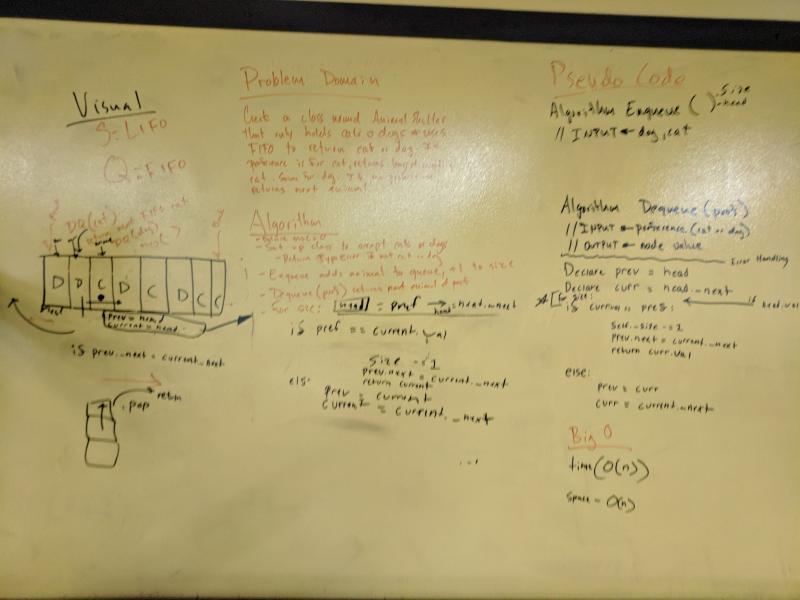 Visual
S=LIFO
Q=FIFO
DQ(cat)
return next FIFO cat
DQ(dog)
D D C D C D C C
head
prev = head
current = head._
is prev._next = current._next
.pop
return
Problem Domain
Create a class around Animal Shelter
that only holds cats or dogs & uses
FIFO to return cat or dog. If
preference is for cat, returns
cat. Same for dog. If no preference,
returns next animal
Algorithm
- Set up class to accept cats or dogs
- Return TypeError if not cat or dog
- Enqueue adds animal to queue, +1 to size
- Dequeue (pref) returns next animal of pref
- For size: head = pref → head = head._next
is pref == current.val
size -= 1
prev.next = current._next
return current
else:
prev = current
current = current._next
...
Pseudo Code
Algorithm Enqueue ( )
- Size
- head
// INPUT ← dog, cat
Algorithm Dequeue (pref)
// INPUT ← preference (cat or dog)
// OUTPUT ← node value
Error Handling
Declare prev = head
Declare curr = head._next
For size:
is current = pref:
if head.val
self._size -= 1
prev.next = current._next
return curr.val
else:
prev = curr
curr = current._next
Big O
time (O(n))
space = O(n)